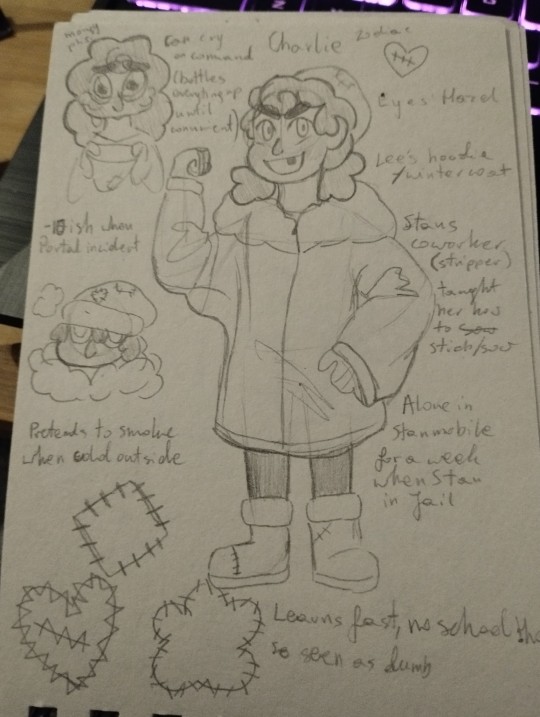 Charlie
Zodiac
can cry
on command
(bottles
everything up
until
convenient)
Eyes: Hazel
Lee's hoodie
/wintercoat
-10ish when
Portal incident
Stans
coworker
(stripper)
taught
her how
to sew
stich/sow
Pretends to smoke
when cold outside
Alone in
stanmobile
for a week
when Stan
in Jail
Learns fast, no school tho
so seen as dumb